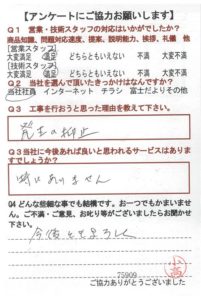 【アンケートにご協力お願いします】
Q1 営業・技術スタッフの対応はいかがでしたか?
商品知識、問題対応速度、提案、説明能力、挨拶、礼儀 他
[営業スタッフ]
大変満足 満足 どちらともいえない 不満 大変不満
[技術スタッフ]
大変満足 満足 どちらともいえない 不満 大変不満
Q2 当社を選んで頂いたきっかけはなんですか?
当社社員 インターネット チラシ 富士だよりその他
Q3 工事を行おうと思った理由を教えて下さい。
Q3当社に今後あれば良いと思われるサービスはありますでしょうか?
特にありません
Q4 どんな些細な事でも結構です。お一つでもかまいません。ご不満・ご意見、お叱り等がございましたらお聞かせ下さい。
今後ともよろしく
75909
ご協力ありがとうございました